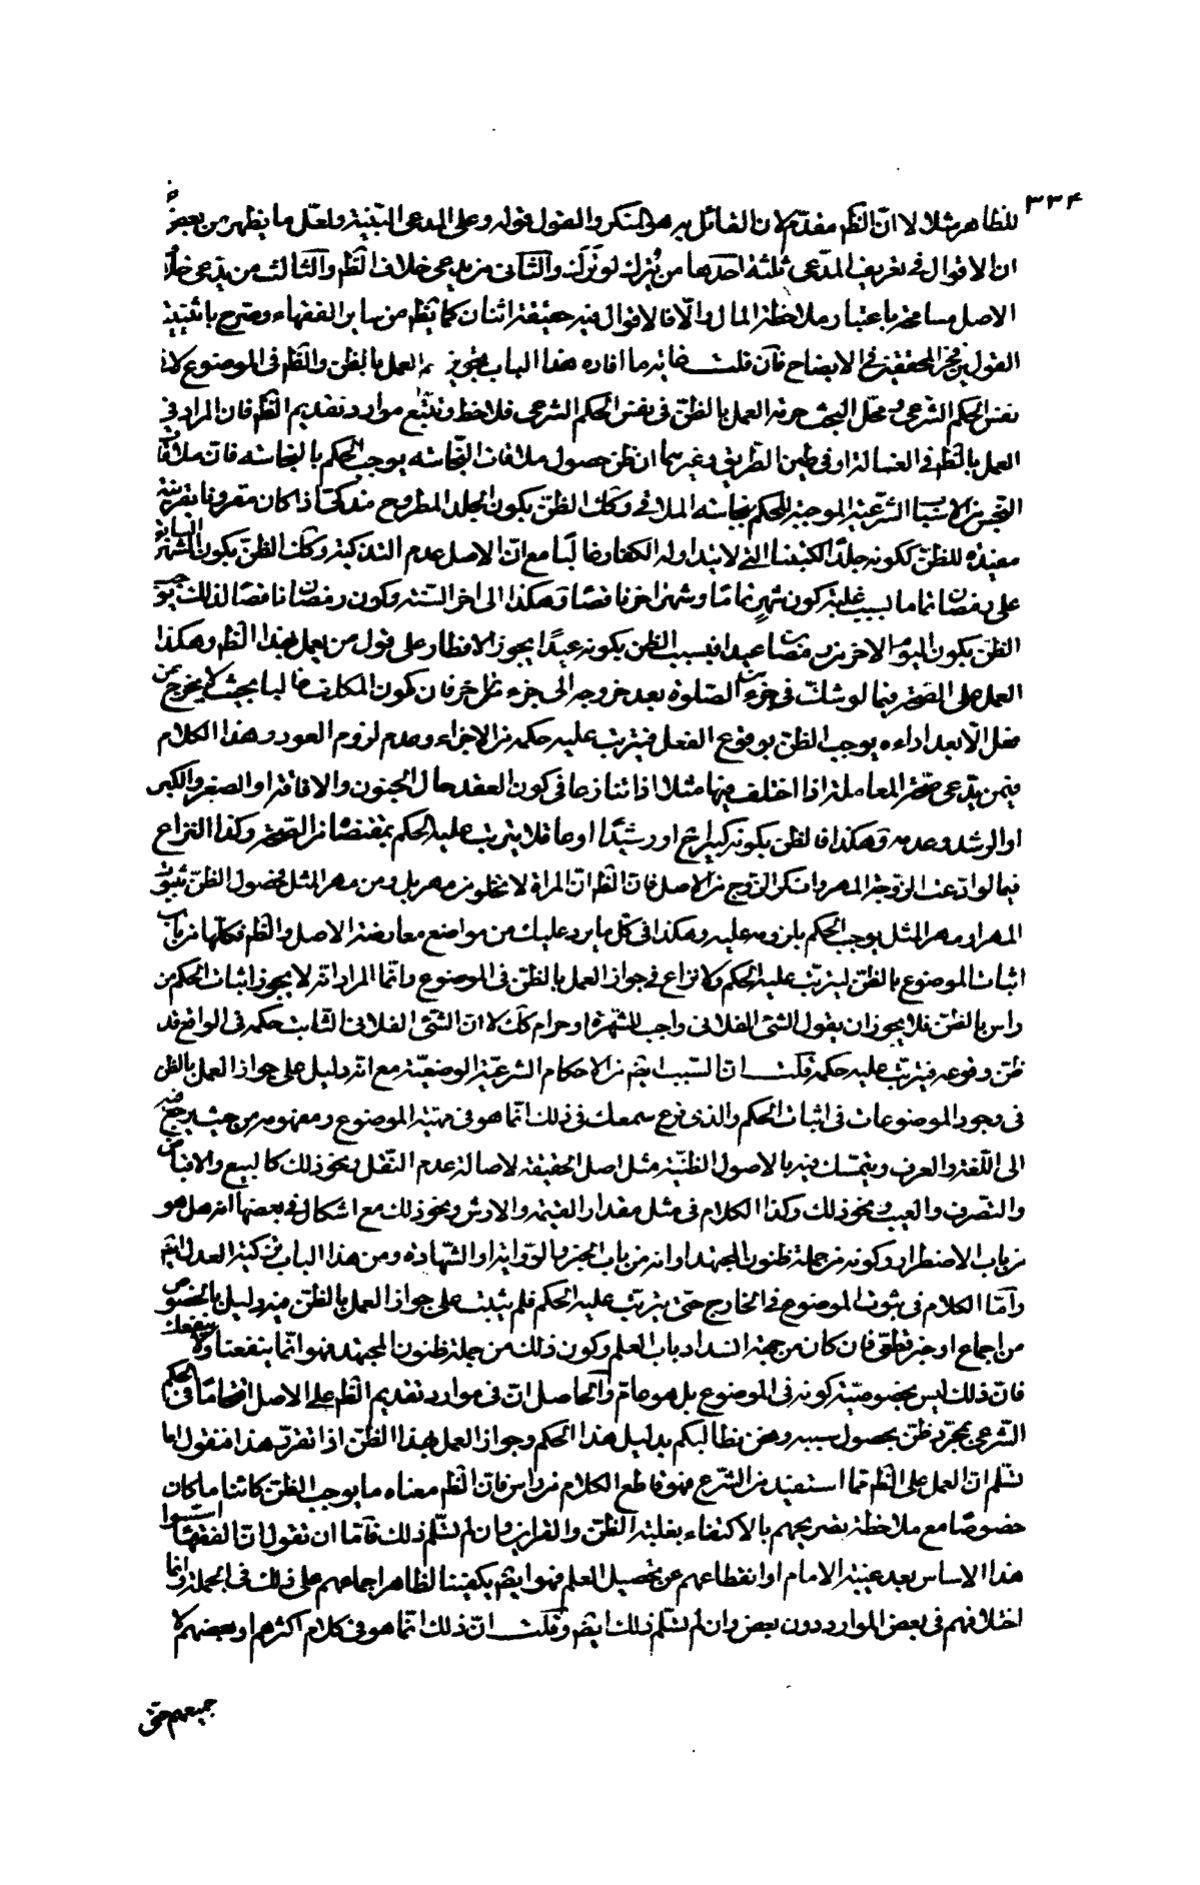 ٣٣۴
للظاهر مثلا لا ان الظم مقدم لان القائل به هو المنكر والقول قوله وعلى المدعى البينة ولعل ما يظهر من بعض
ان الاقوال فى تعريف المدعى ثلثة احدها من يُترك لو تَرَك والثانى من يدعى خلاف الظم والثالث من يدعى خلاف
الاصل مسامحة باعتبار ملاحظة المال والّا فالاقوال فيه حقيقة اثنان كما يظم من ساير الفقهاء وصرح باثنينية
القول فخر المحققين فى الايضاح فان قلت غاية ما افاده هذا الباب تجويز العمل بالظن والظم فى الموضوع لا فى
نفس الحكم الشرعى ومحل البحث حرمة العمل بالظن فى نفس الحكم الشرعى فلاحظ وتتبع موارد تقديم الظم فان المراد فى
العمل بالظم فى الغسالة او فى طين الطريق وغيرهما ان ظن حصول ملاقات النجاسه يوجب الحكم بالنجاسه فان ملاقات
النجس من الاسباب الشرعية الموجبة للحكم بنجاسة الملاقى وكك الظن بكون الجلد المطروح مذكى اذا كان مقرونا بقرينة
مفيدة للظن ككونه جلدا لكتبنا التى لا يتداوله الكفار غالبًا مع ان الاصل عدم التذكية وكك الظن بكون الشهر البانى
على رمضان تاما بسبب غلبة كون شهرٍ تامّا وشهر اخر ناقصًا وهكذا الى اخر السنة وكون رمضان ناقصًا لذلك يوجب
الظن بكون اليوم الاخر من رمضان عيدا فبسبب الظن بكونه عيدًا يجوز الافطار على قول من يعمل بهذا الظم وهكذا
العمل على الصحة فيما لو شك فى جزء من الصلوة بعد خروجه الى جزء اخر فان كون المكلف غالبا بحيث لا يخرج من
فعل الّا بعد اداءه يوجب الظن بوقوع الفعل فيترتب عليه حكمه من الاجزاء وعدم لزوم العود وهذا الكلام
فيمن يدعى صحة المعاملة اذا اختلف فيها مثلا اذا تنازعا فى كون العقد حال الجنون والافاقة او الصغر والكبر
او الرشد وعدمه وهكذا فالظن بكونه كبيرا ح او رشيدًا او عاقلا يترتب عليه الحكم بمقتضاه من الصحة وكذا النزاع
فيما لو ادعت الزوجة المهر وانكر الزوج من الاصل فان الظم ان المراة لا تخلو من مهر بل ومن مهر المثل فحصول الظن بثبوت
المهر او مهر المثل يوجب الحكم بلزومه عليه وهكذا فى كل ما يرد عليك من مواضع معارضة الاصل والظم فكلها من باب
اثبات الموضوع بالظن ليترتب عليه الحكم ولا نزاع فى جواز العمل بالظن فى الموضوع وانما المراد انه لا يجوز اثبات الحكم من
راس بالظن فلا يجوز ان يقول الشئ الفلانى واجب للشهرة او حرام كك لا ان الشئ الفلانى الثابت حكمه فى الواقع قد
ظن وقوعه فيترتب عليه حكمه قلت ان السبب ايضم من الاحكام الشرعية الوضعية مع انه دليل على جواز العمل بالظن
فى وجود الموضوعات فى اثبات الحكم والذى قرع سمعك فى ذلك انما هو فى مهية الموضوع ومفهومه من حيث يرجع فيه
الى اللغة والعرف ويتمسك فيه بالاصول الظنية مثل اصل الحقيقة لاصالة عدم النقل ونحو ذلك كالبيع والاقباض
والتصرف والعيب ونحو ذلك وكذا الكلام فى مثل مقدار القيمة والارش ونحو ذلك مع اشكال فى بعضها انه هل هو
من باب الاضطرار وكونه من جملة ظنون المجتهد او انه من باب الخبر والرواية او الشهادة ومن هذا الباب تزكية العدل ايضم
واما الكلام فى ثبوت الموضوع فى الخارج حتى يترتب عليه الحكم فلم يثبت على جواز العمل بالظن فيه دليل بالخصوص
من اجماع او خبر قطعى فان كان من جهة انسداد باب العلم وكون ذلك من جملة ظنون المجتهد فهو انما ينفعنا ولا ينفعك
فان ذلك ليس بخصوصية كونه فى الموضوع بل هو عام والحاصل ان فى موارد تقديم الظم على الاصل اقحامًا فى الحكم
الشرعى بمجرد ظن بحصول سببه ونحن نطالبكم بدليل هذا الحكم وجواز العمل بهذا الظن اذا تقرر هذا فنقول اما
نسلم ان العمل على الظم مما استفيد من الشرع فهو قاطع الكلام من راس فان الظم معناه ما يوجب الظن كائنا ما كان
خصوصًا مع ملاحظة تصريحهم بالاكتفاء بغلبة الظن والقراين وان لم نسلم ذلك فاما ان نقول ان الفقهاء اسسوا
هذا الاساس بعد غيبة الامام او انقطاعهم عن تحصيل العلم فهو ايضم يكفينا لظاهر اجماعهم على ذلك فى الجملة وانما
اختلافهم فى بعض الموارد دون بعض وان لم نسلم ذلك ايضم وقلت ان ذلك انما هو فى كلام اكثرهم او بعضهم لا
جميعهم حتى